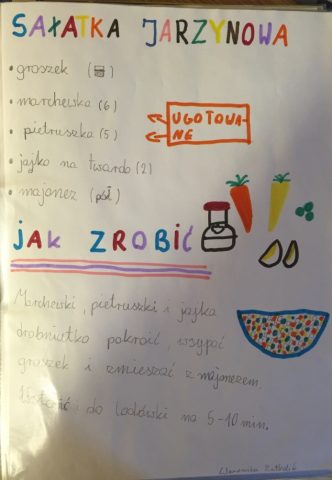 SAŁATKA JARZYNOWA
• groszek ( )
• marchewka (6)
• pietruszka (5)
UGOTOWA-
NE
• jajko na twardo (2)
• majonez (pół)
JAK ZROBIĆ
Marchewki, pietruszki i jajka
drobniutko pokroić, wsypać
groszek i zmieszać z majonezem.
i do lodówki na 5-10 min.
Weronika